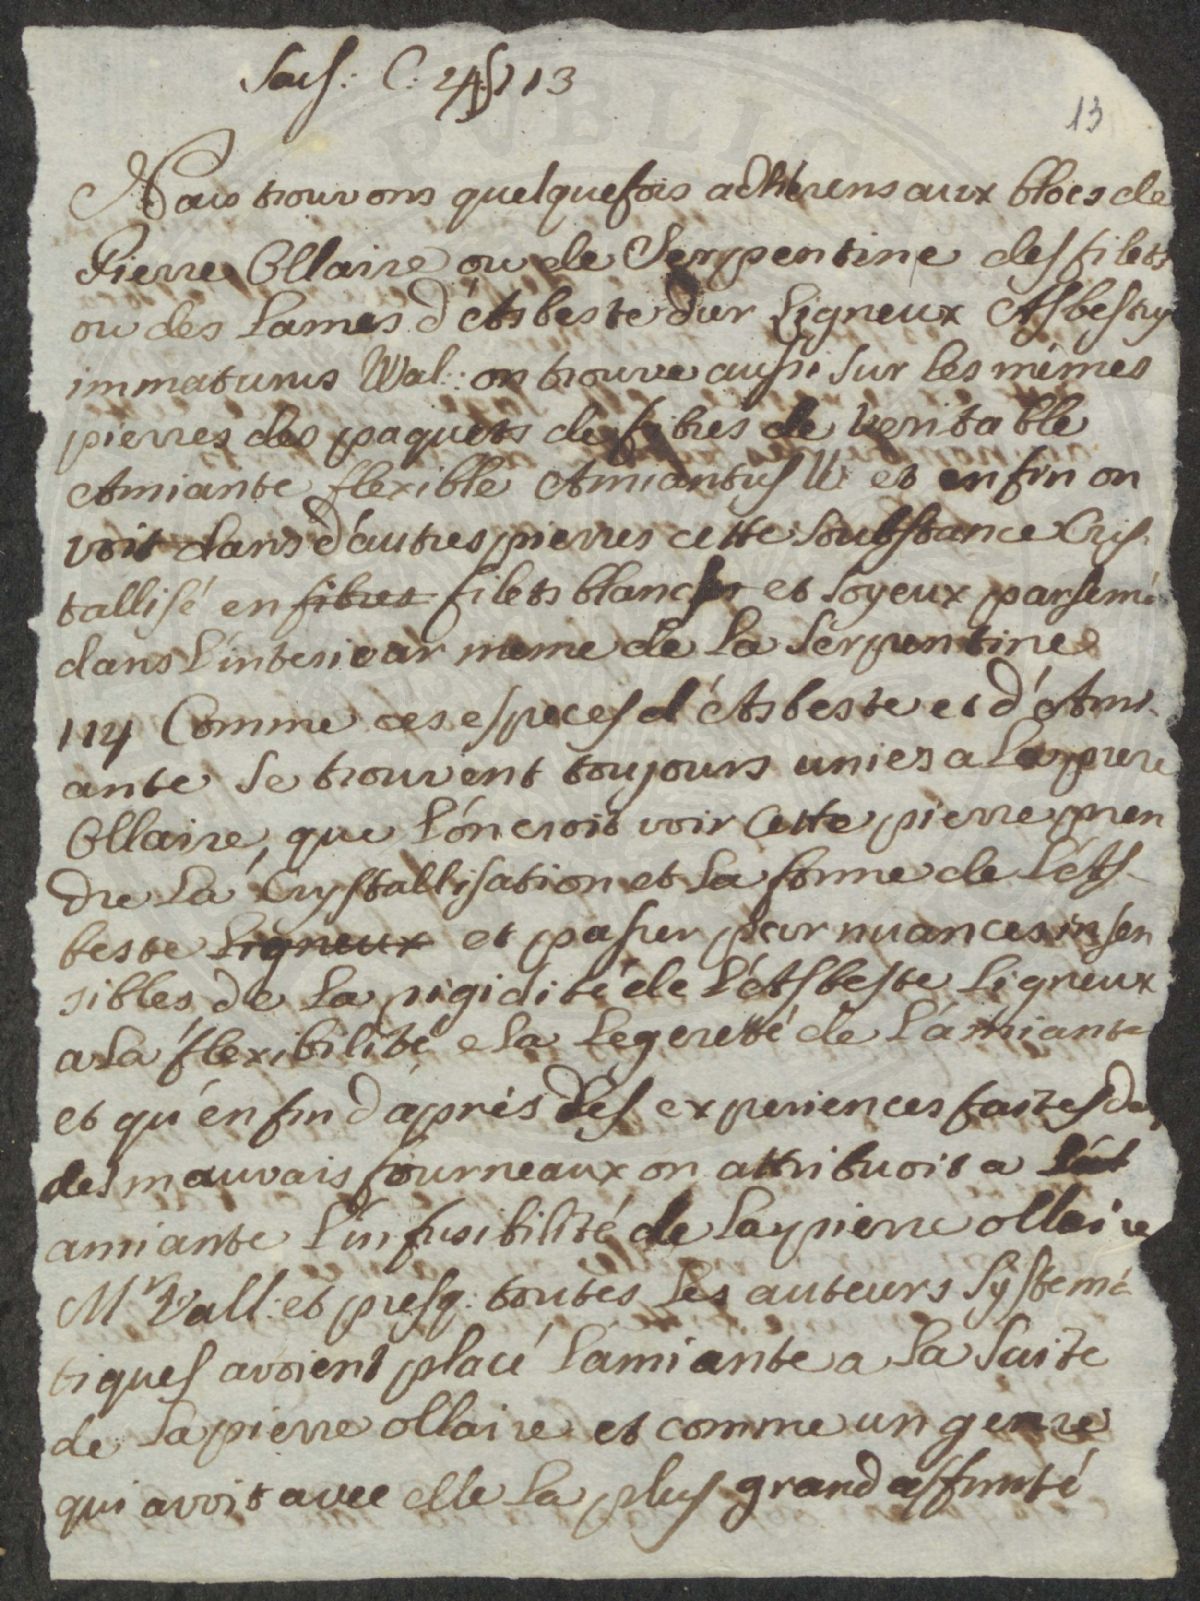 Saus: C. 4 § 113
13
Nous trouvons quelquefois adhérens aux blocs de
Pierre Ollaire ou de Serpentine des filets
ou des Lames d'Asbeste dur Ligneux Asbestus
immaturus Wal: on trouve aussi sur les mêmes
pierres des paquets de fibres de veritable
Amiante flexible Amiantus W: et enfin on
voit dans d'autres pierres cette Substance Crys-
tallisé en fibres filets blancs et Soyeux parsemé
dans L'interieur meme de La Serpentine
114 Comme ces especes d'Asbeste et d'Ami-
ante Se trouvent toujours unies a La piere
Ollaire, que L'on croit voir Cette pierre pren
dre La Crystallisation et La forme de L'As-
beste Ligneux et passer par nuances insen
sibles de La rigidité de L'Asbeste Ligneux
a La flexibilité e La Legereté de L'amiante
et qu'enfin d'après des experiences faites dans
des mauvais fourneaux on attribuoit a
amiante L'infusibilité de La pierre ollaire
Mr Vall: et presq: toutes Les auteurs Systemá
tiques avoient placé L'amiante a La Suite
de La pierre ollaire et comme un genre
qui avoit avec elle La plus grand affinité